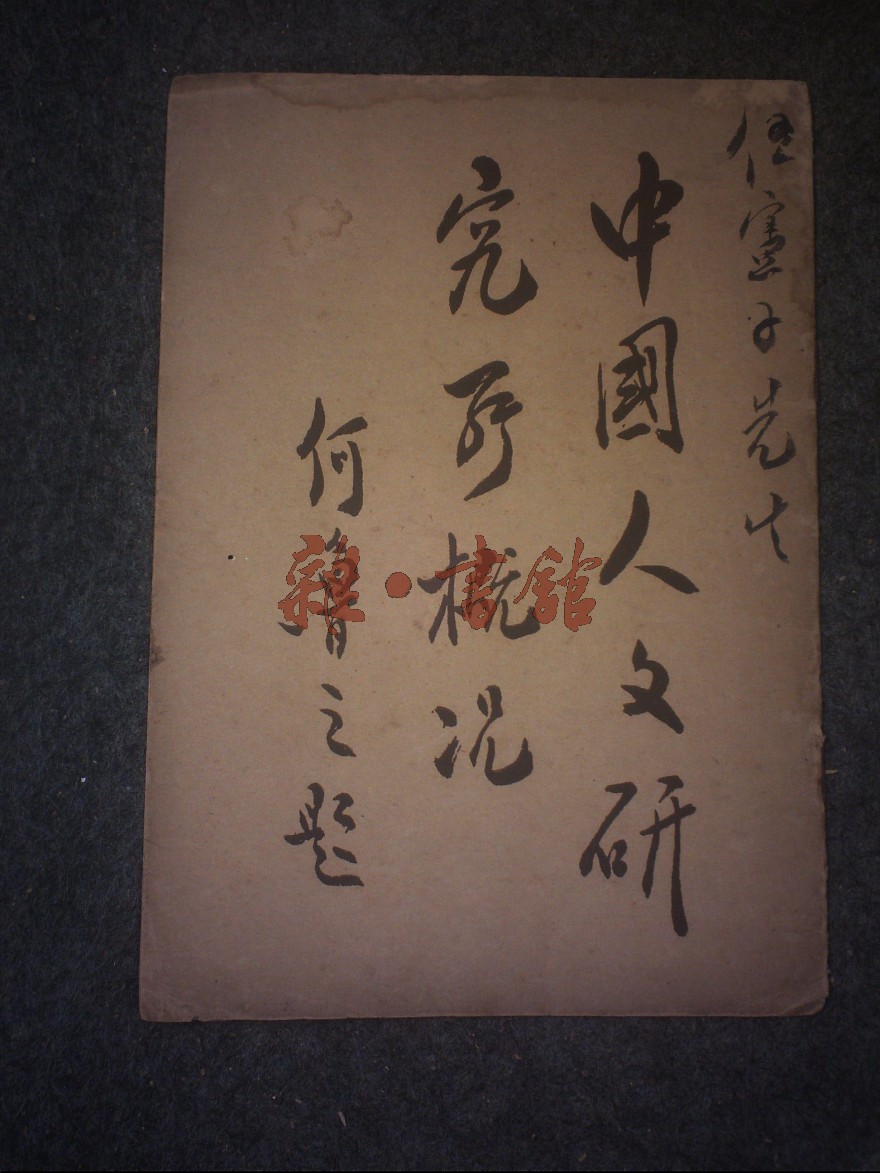 伍憲子先生
中國人文研
究所概況
何魯之題
雜·書館